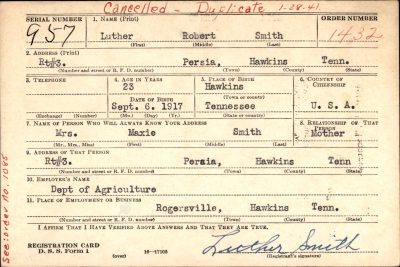 Cancelled - Duplicate 1-28-41
SERIAL NUMBER 1. NAME (Print) ORDER NUMBER
957 Luther Robert Smith 1432
(First) (Middle) (Last)
2. ADDRESS (Print)
Rt#3. Persia, Hawkins Tenn.
(Number and street or R. F. D. number) (Town) (County) (State)
3. TELEPHONE 4. AGE IN YEARS 5. PLACE OF BIRTH 6. COUNTRY OF CITIZENSHIP
23 Hawkins
(Town or county)
DATE OF BIRTH
Sept. 6. 1917 Tennessee U. S. A.
(Exchange) (Number) (Mo.) (Day) (Yr.) (State or country)
7. NAME OF PERSON WHO WILL ALWAYS KNOW YOUR ADDRESS 8. RELATIONSHIP OF THAT PERSON
Mrs. Maxie Smith Mother
(Mr., Mrs., Miss) (First) (Middle) (Last)
9. ADDRESS OF THAT PERSON
Rt#3. Persia, Hawkins Tenn
(Number and street or R. F. D. number) (Town) (County) (State)
10. EMPLOYER'S NAME
Dept of Agriculture
11. PLACE OF EMPLOYMENT OR BUSINESS
Rogersville, Hawkins Tenn.
(Number and street or R. F. D. number) (Town) (County) (State)
I AFFIRM THAT I HAVE VERIFIED ABOVE ANSWERS AND THAT THEY ARE TRUE.
REGISTRATION CARD
D. S. S. Form 1 (over) 16—17105 Luther Smith
(Registrant's signature)
See: order No. 1085